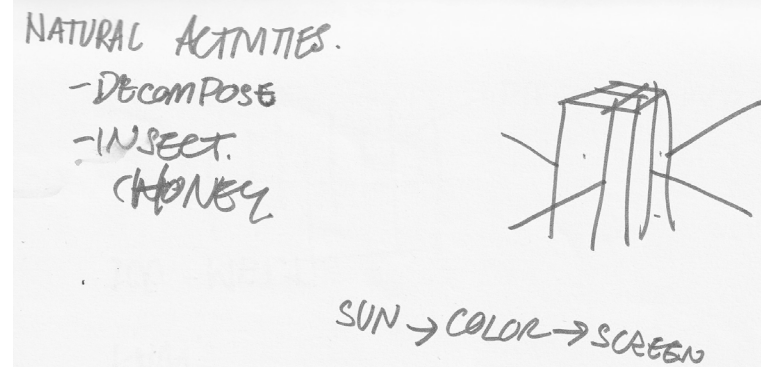 NATURAL ACTIVITIES.
-DECOMPOSE
-INSECT.
(HONEY
SUN → COLOR → SCREEN